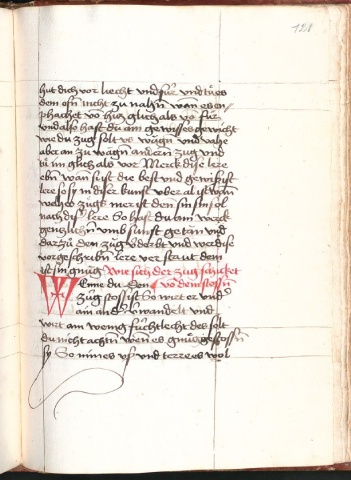 128
hut dich vor liecht und für und tues
dem ofn nicht zu nahn wan es en
phachet vo hitz glich als vo für
und also hast du ain gewisses gewicht
wie du zug solt us wägn und vahe
aber an zu wägn andern zug und
tů im glich als vor Merck dise lere
ebn wan si ist die best und gewissist
lere so sy in diser kunst uber al ist wan
welches zugs mer ist den sin sin sol
nach diser lere So hast du ain werck
gentzlichn umb sunst getan und
darzů den zug verderbt und wer dise
vorgeschribn lere verstaut dem
ist sin gnůg Wie sich der zug schicket
Wenne du den vo dem stossn
zug stossist So wirt er und
ain ander verwandelt und
wirt ain wenig fücht lecht des solt
du nicht achtn wen es gnůg gestossn
sy So nim es uss und terre es wol